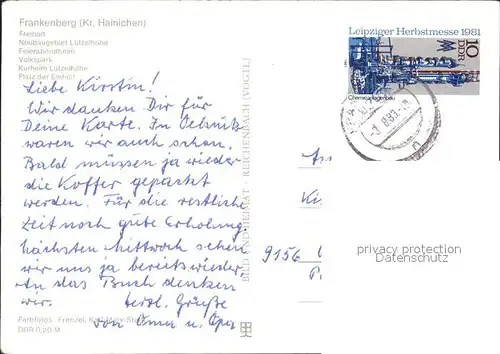 Frankenberg (Kr. Hainichen)
Freibad
Neubaugebiet Lützelhöhe
Feierabendheim
Volkspark
Kurheim Lützelhöhe
Platz der Einheit
Liebe Kirstin!
Wir danken Dir für
Deine Karte. In Oelsnitz
waren wir auch schon.
Bald müssen ja wieder
die Koffer gepackt
werden. Für die restliche
Zeit noch gute Erholung.
nächsten Mittwoch sehen
wir uns ja bereits wieder.
An das Buch denken
wir. Herzl. Grüße
von Oma u. Opa
Farbfotos: Frenzel, Karl-Marx-Stadt
DDR 0,20 M
BILD UND HEIMAT · REICHENBACH (VOGTL)
Leipziger Herbstmesse 1981
10
DDR
Chemieanlagenbau
9156
privacy protection
Datenschutz